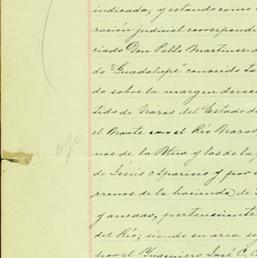 indicada, y estando como
ración judicial correspondi
ciado Don Pablo Martínez d
do "Guadalupe" conocido ta
do sobre la margen derech
tido de del Estado de
el Norte con el Río
nos de la y los de la
de Jesús Aparicio y por
rrenos de la hacienda, de
ganedas, perteneciente
del Río; siendo su area se
por el Ingeniero José C. C
ojo